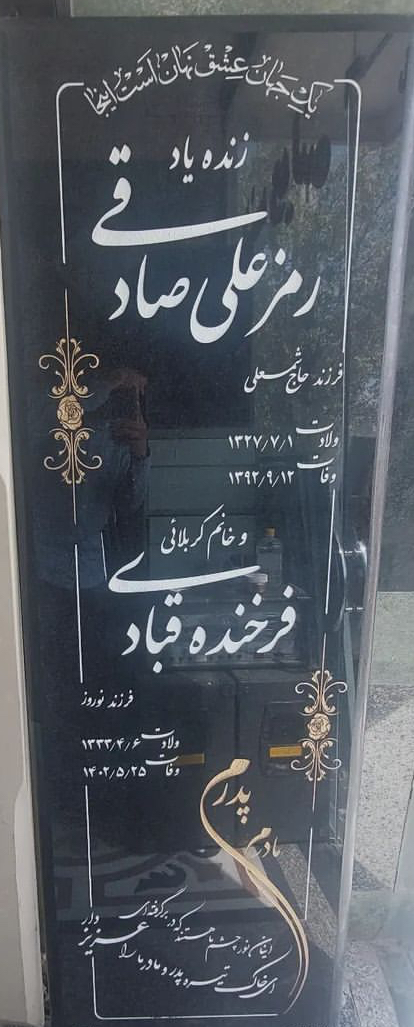 یک جهان عشق نهان است اینجا
زنده یاد
رمزعلی صادقی
فرزند حاج شمسعلی
ولادت ۱۳۲۷/۷/۱
وفات ۱۳۹۲/۹/۱۲
و خانم کربلائی
فرخنده قبادی
فرزند نوروز
ولادت ۱۳۳۳/۴/۶
وفات ۱۴۰۲/۵/۲۵
پدرم
مادرم
اینان نور چشم ما هستند که در بر گرفته‌ای
ای خاک تیره پدر و مادر ما را عزیز دار